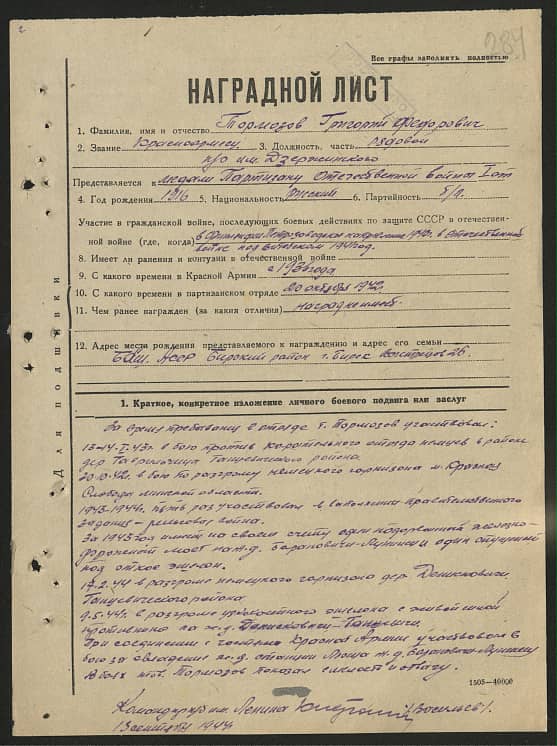 284
Все графы заполнять полностью
НАГРАДНОЙ ЛИСТ
1. Фамилия, имя и отчество Тормозов Григорий Федорович
2. Звание Красноармеец 3. Должность, часть рядовой
п/о им. Дзержинского
Представляется к медали Партизану Отечественной войны I ст
4. Год рождения 1916 5. Национальность русский 6. Партийность б/п.
Участие в гражданской войне, последующих боевых действиях по защите СССР в отечествен-
ной войне (где, когда) в Финляндии Петрозаводском 1940г. в Отечественной
войне под Витебском 1941 год.
8. Имеет ли ранения и контузии в отечественной войне
9. С какого времени в Красной Армии с 1938 года
10. С какого времени в партизанском отряде 20 октября 1942
11. Чем ранее награжден (за какия отличия) награжден
12. Адрес место рождения представляемого к награждению и адрес его семьи
Баш. АССР Бирский район г. Бирск 26
Для подшивки
1. Краткое, конкретное изложение личного боевого подвига или заслуг
За время пребывания в отряде т. Тормозов участвовал:
13-14.I.43г. в бою против карательного отряда немцев в районе
дер. Гаврильчицы района
20.10.42. в бою по разгрому немецкого гарнизона м. Красная
Слобода Минской области.
1943-1944г. раз участвовал в выполнении правительственного
задания - рельсовая война.
За 1943 год имеет на своем счету один подорванный железно-
дорожный мост на ж.д. Барановичи-Лунинец и один спущенный
под откос эшелон.
17.2.44 в разгроме немецкого гарнизона дер. Денисковичи
района
9.5.44г. в разгроме эшелона с живой силой
противника на ж.д. Денисковичи-
При соединении с частями Красной Армии участвовал в
бою за овладение ж.д. станции ж.д. Барановичи-Лунинец
В боях т. Тормозов показал смелость и отвагу.
1505—40000
Командир им. Ленина /Васильев/.
1 сентября 1944